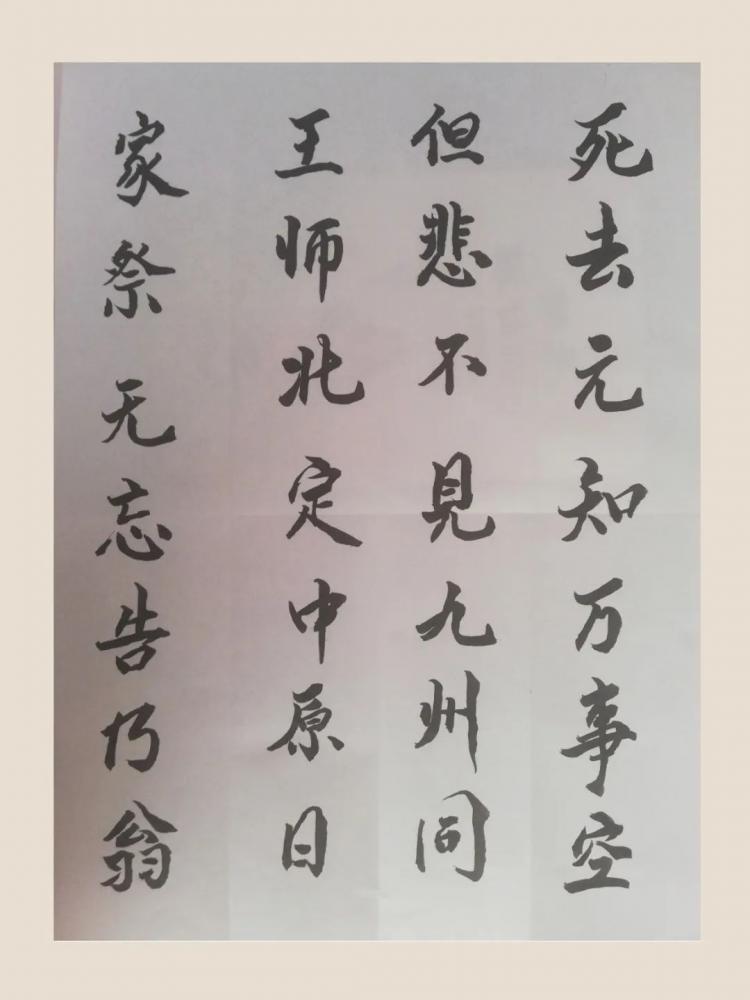 死去元知万事空
但悲不見九州同
王师北定中原日
家祭无忘告乃翁